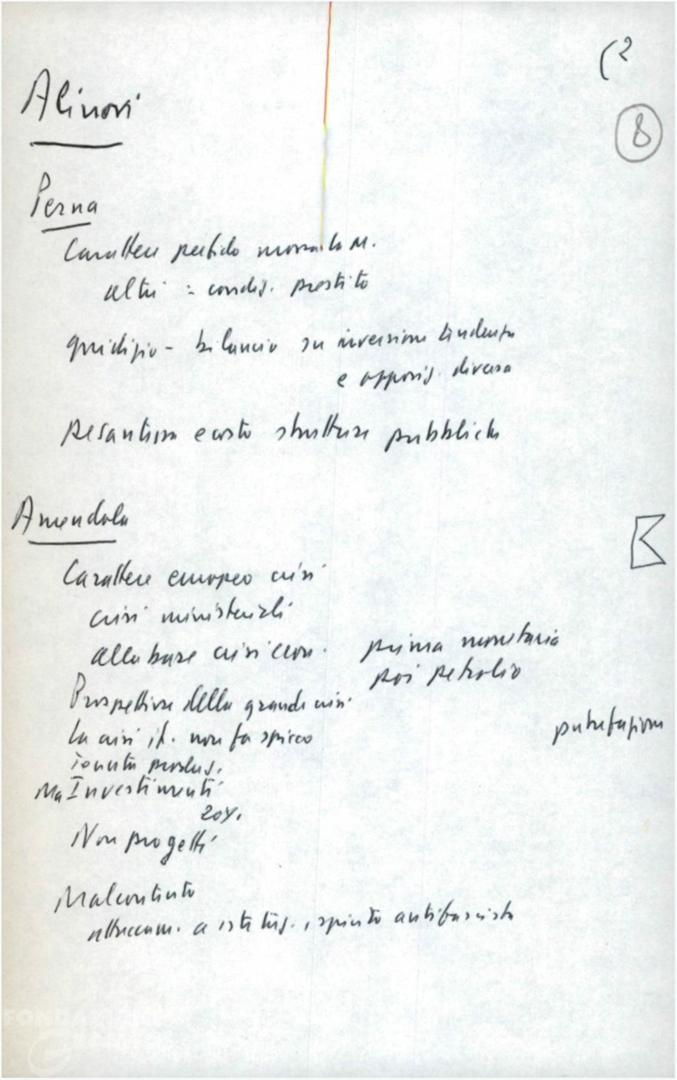 (2
8
Alinovi
Perna
Carattere partito
altri = condiz. prestito
giudizio - bilancio su inversione tendenza
e opposiz. diversa
pesantezza e costo strutture pubbliche
Amendola
Carattere europeo crisi
crisi ministeriali
alla base crisi econ. prima monetaria
poi petrolio
Prospettive della grande crisi
la crisi it. non fa spicco
putrefazione
tenuta produz.
Ma Investimenti
20%
Non progetti
Malcontento
attaccam. a istituz., spirito antifascista
FONDAZIONE